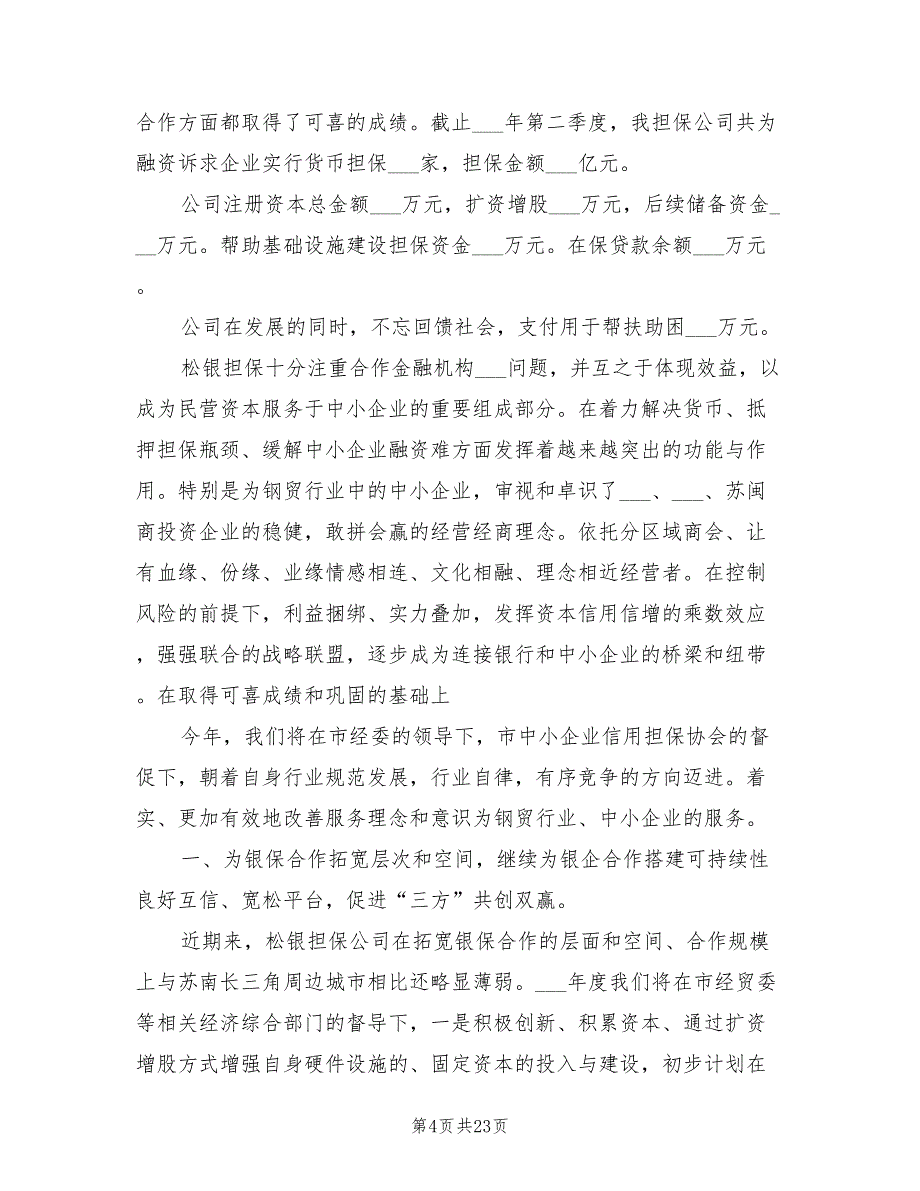 合作方面都取得了可喜的成绩。截止___年第二季度，我担保公司共为
融资诉求企业实行货币担保___家，担保金额___亿元。
公司注册资本总金额___万元，扩资增股___万元，后续储备资金_
__万元。帮助基础设施建设担保资金___万元。在保贷款余额___万元
。
公司在发展的同时，不忘回馈社会，支付用于帮扶助困___万元。
松银担保十分注重合作金融机构___问题，并互之于体现效益，以
成为民营资本服务于中小企业的重要组成部分。在着力解决货币、抵
押担保瓶颈、缓解中小企业融资难方面发挥着越来越突出的功能与作
用。特别是为钢贸行业中的中小企业，审视和卓识了___、___、苏闽
商投资企业的稳健，敢拼会赢的经营经商理念。依托分区域商会、让
有血缘、份缘、业缘情感相连、文化相融、理念相近经营者。在控制
风险的前提下，利益捆绑、实力叠加，发挥资本信用信增的乘数效应
，强强联合的战略联盟，逐步成为连接银行和中小企业的桥梁和纽带
。在取得可喜成绩和巩固的基础上
今年，我们将在市经委的领导下，市中小企业信用担保协会的督
促下，朝着自身行业规范发展，行业自律，有序竞争的方向迈进。着
实、更加有效地改善服务理念和意识为钢贸行业、中小企业的服务。
一、为银保合作拓宽层次和空间，继续为银企合作搭建可持续性
良好互信、宽松平台，促进“三方”共创双赢。
近期来，松银担保公司在拓宽银保合作的层面和空间、合作规模
上与苏南长三角周边城市相比还略显薄弱。___年度我们将在市经贸委
等相关经济综合部门的督导下，一是积极创新、积累资本、通过扩资
增股方式增强自身硬件设施的、固定资本的投入与建设，初步计划在
第4页共23页